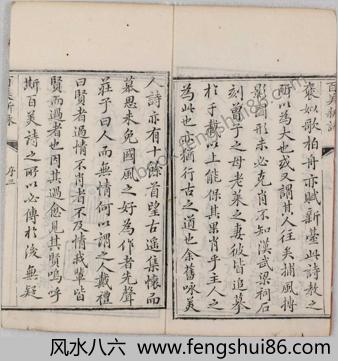 百美新詠
褒姒歌柏舟亦賦新臺此詩教之
所以為大也或又謂其人往矣捕風搏
影圖形未必克肖不知漢武梁祠石
刻曾子之母老萊之妻彼皆追摹
於千載以上能保其果肖乎主人之
為此也亦猶行古之道也余舊詠美
人詩亦有十餘首望古遙集懷而
慕思未免國風之好為作者先聲
莊子曰人而無情何以謂之人戴禮
曰賢者過情不肖者不及情我輩皆
賢而過者也因其過愈見其賢嗚呼
斯百美詩之所以必傳於後無疑
百美新詠 序三
风水八六 www.fengshui86.com